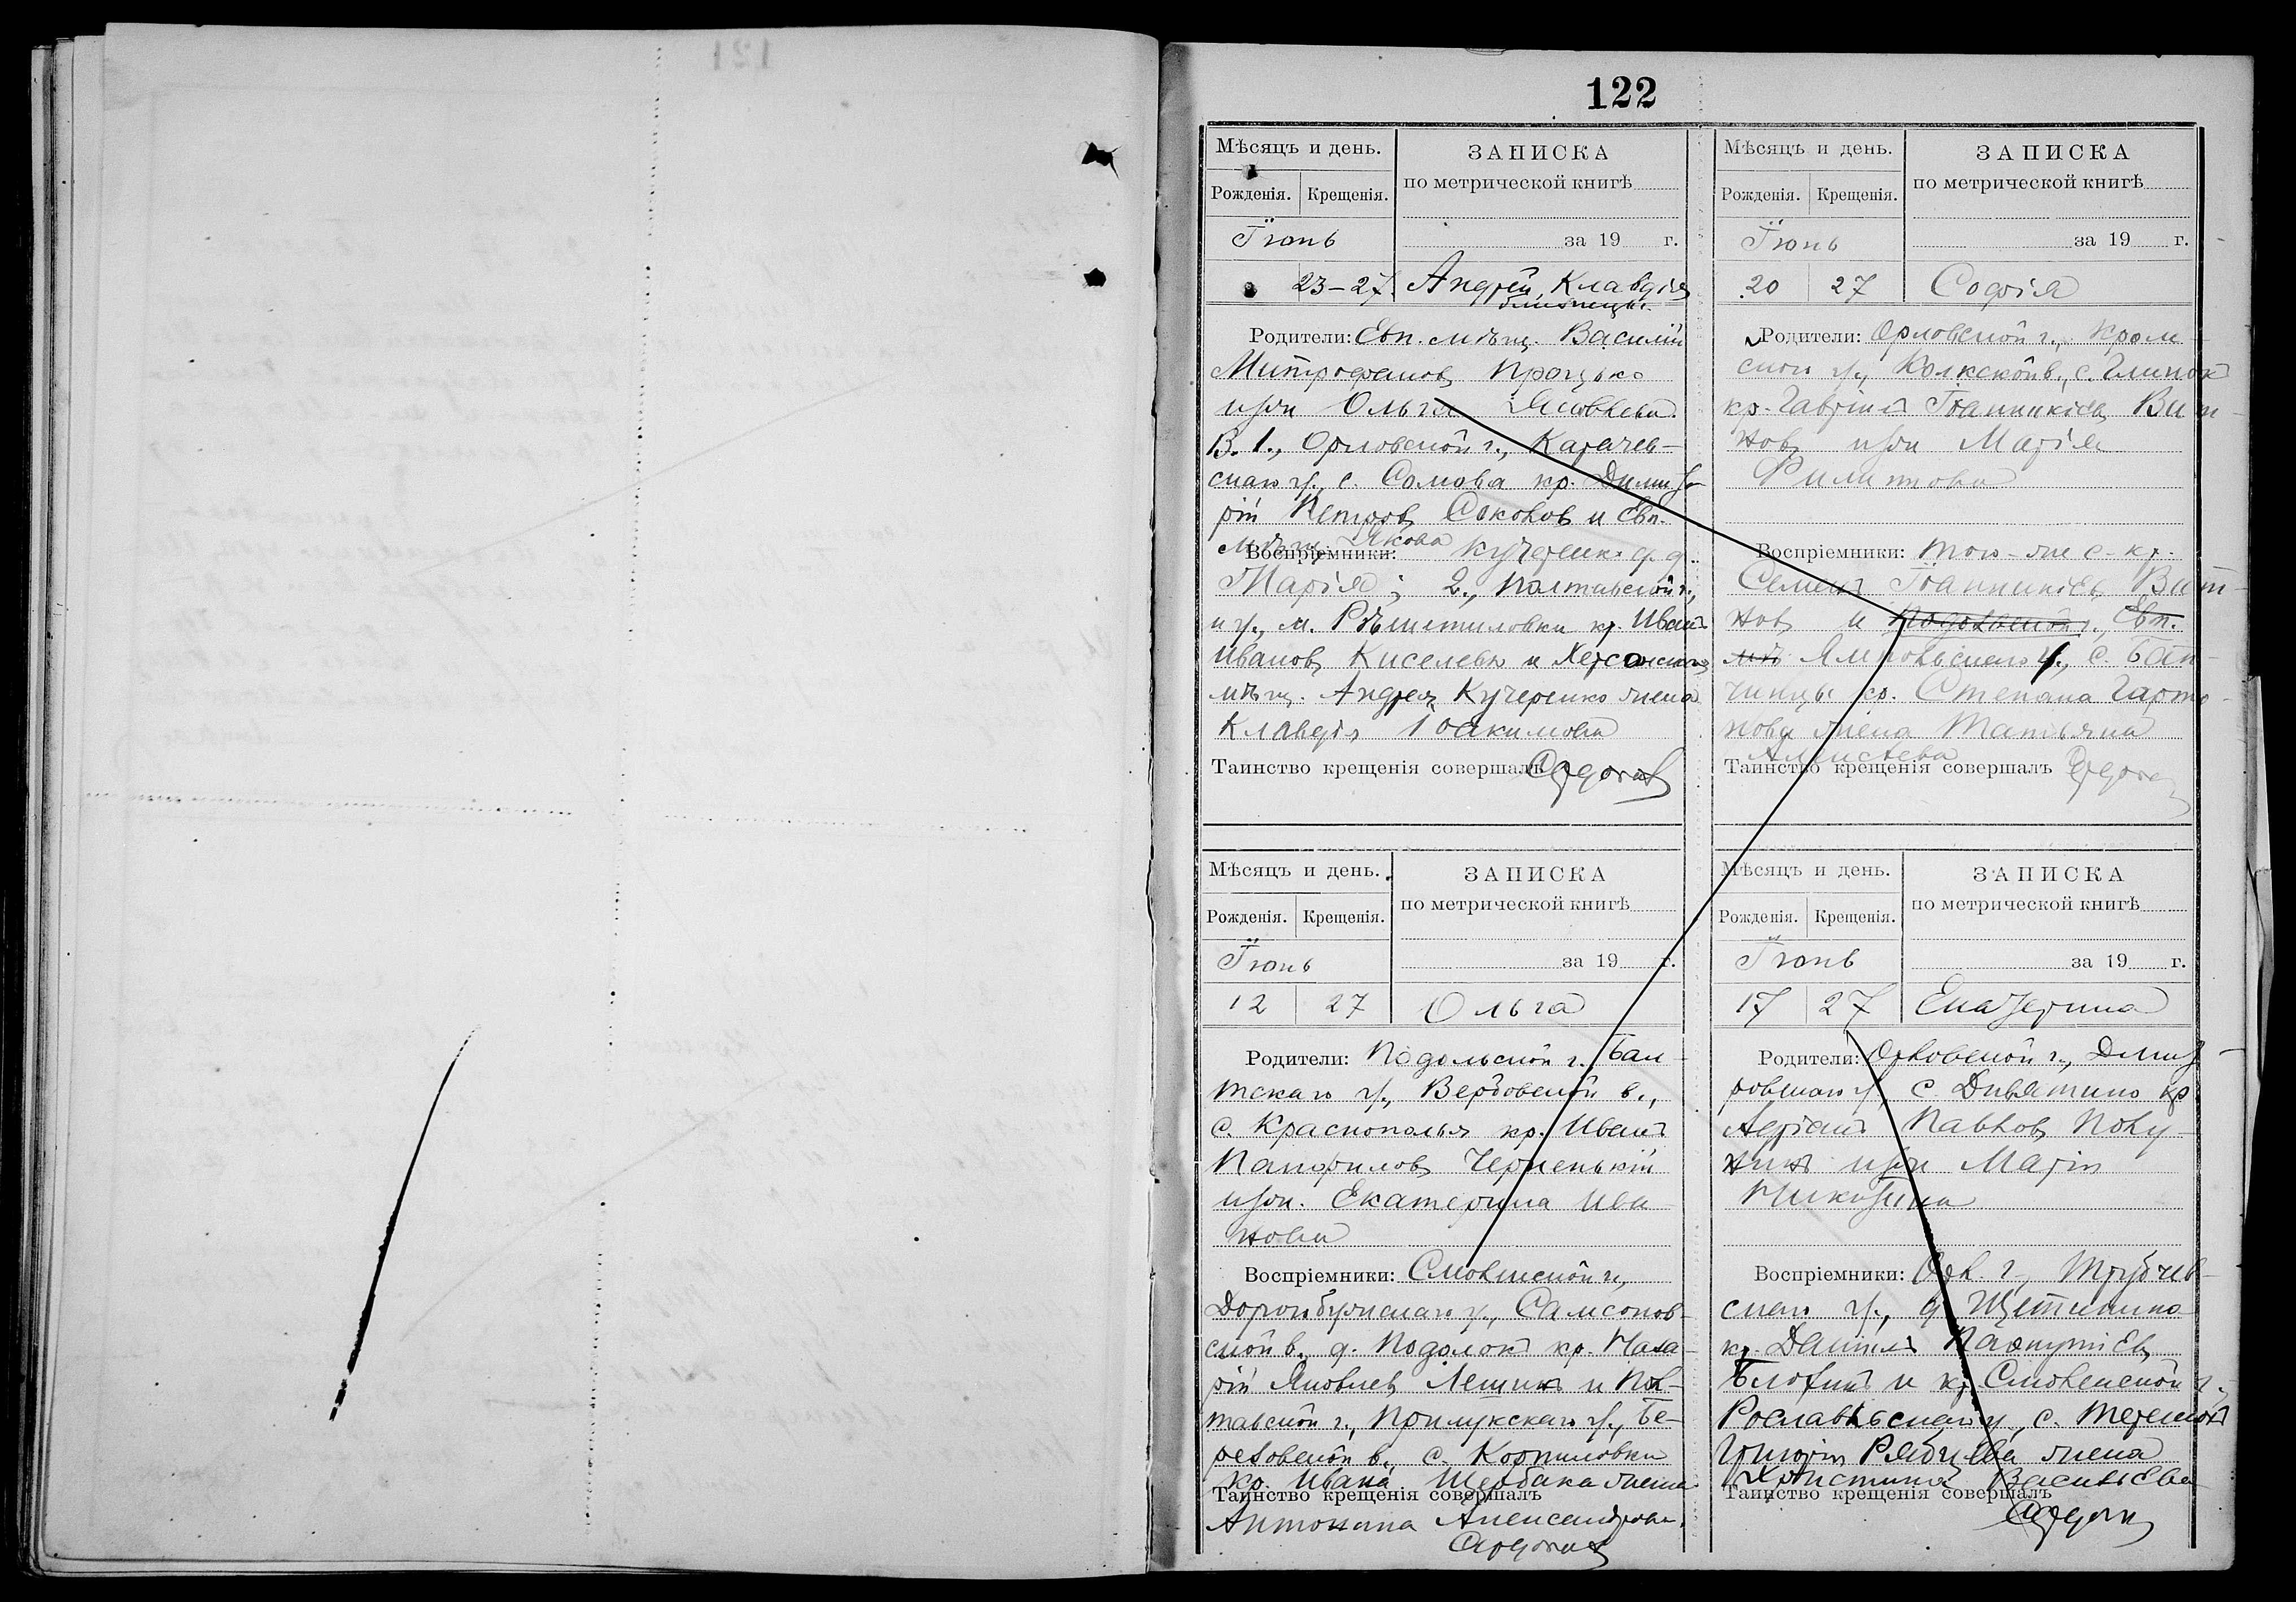 122
Мѣсяцъ и день.
ЗАПИСКА
Рожденія. Крещенія.
по метрической книгѣ
Іюнь
за 19 г.
23–27. Андрей, Клавдія
близнецы.
Родители: Евп. мѣщ. Василій
Митрофановъ Процько
и Ольга Яковлева.
В. 1., Орловской г., Карачев-
скаго у., с. Сомова кр. Димит-
рій Петровъ Соколов и Евп.
мѣщ. Якова Кучеренко
Воспріемники:
Марія; 2., Полтавской г.,
и у., м. Рѣшетиловки кр. Иванъ
Ивановъ Киселевъ и Херсонскаго
мѣщ. Андрея Кучеренко жена
Клавдія Іоакимова
Таинство крещенія совершалъ
Мѣсяцъ и день.
ЗАПИСКА
Рожденія. Крещенія.
по метрической книгѣ
Іюнь
за 19 г.
20 27 Софія
Родители: Орловской г., Кром-
скаго у., с. Глинокъ
кр. Гавріилъ Іоанникіевъ Вит-
новъ и Марія
Филиппова
Воспріемники: того-же с. кр.
Семенъ Іоанникіевъ Вит-
новъ и Подольской г., Евп.
мѣ Ямпольскаго у., с.
кр. Степана
жена Татьяна
Алексѣева
Таинство крещенія совершалъ
Мѣсяцъ и день.
ЗАПИСКА
Рожденія. Крещенія.
по метрической книгѣ
Іюнь
за 19 г.
12 27 Ольга
Родители: Подольской г., Бал-
тскаго у., Вербовской в.,
с. Краснополья кр. Иванъ
Панфиловъ Черненькій
Екатерина Ива
нова
Воспріемники: Смоленской г.,
Дорогобужскаго у., Самсонов-
ской в., д. Подолокъ кр. Наза-
рій Яковлевъ Лешикъ и Пол-
тавской г., Прилукскаго у., Бе-
резовской в., с. Корниловки
кр. Ивана Щербака жена
Таинство крещенія совершалъ
Антонина Александрова.
Мѣсяцъ и день.
ЗАПИСКА
Рожденія. Крещенія.
по метрической книгѣ
Іюнь
за 19 г.
17 27 Екатерина
Родители: Орловской г., Дмит-
ровскаго у., с. Дивятино кр
Адріанъ Павловъ Полу-
Марія
Никитина
Воспріемники: Орл. г., Трубчев-
скаго у., д. Щетинино
кр. Даніилъ Пафнутіевъ
Блохинъ и кр. Смоленской г.,
Рославльскаго у., с.
Григорія Рябцева жена
Христина Васильева
Таинство крещенія совершалъ